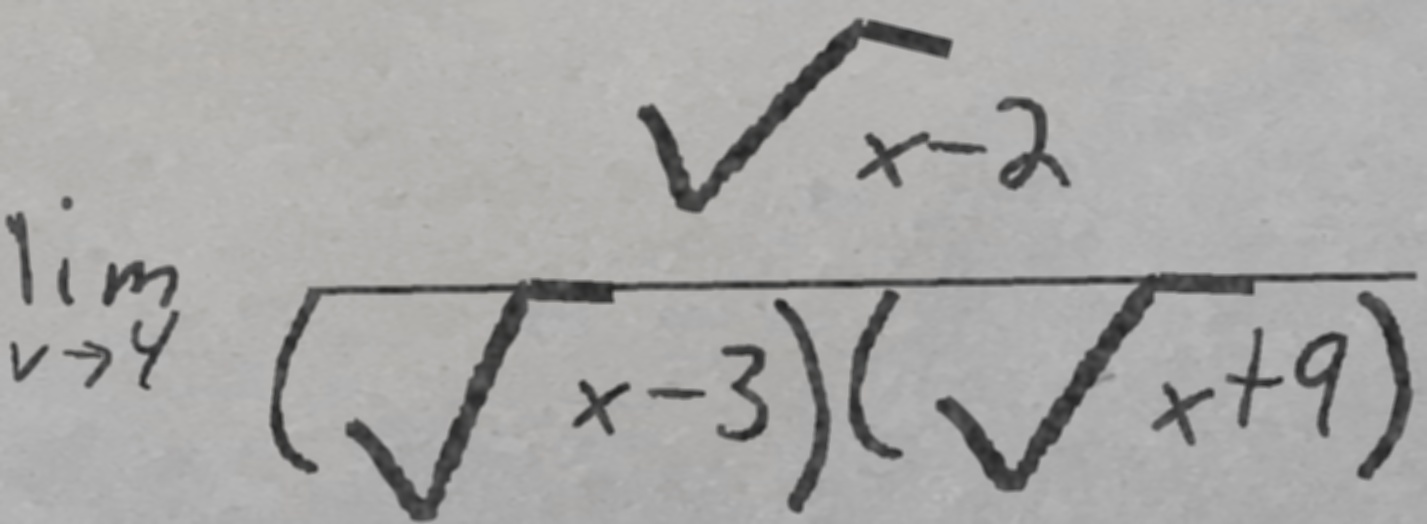 \lim_{v \to 4} \frac{\sqrt{x}-2}{(\sqrt{x}-3)(\sqrt{x}+9)}